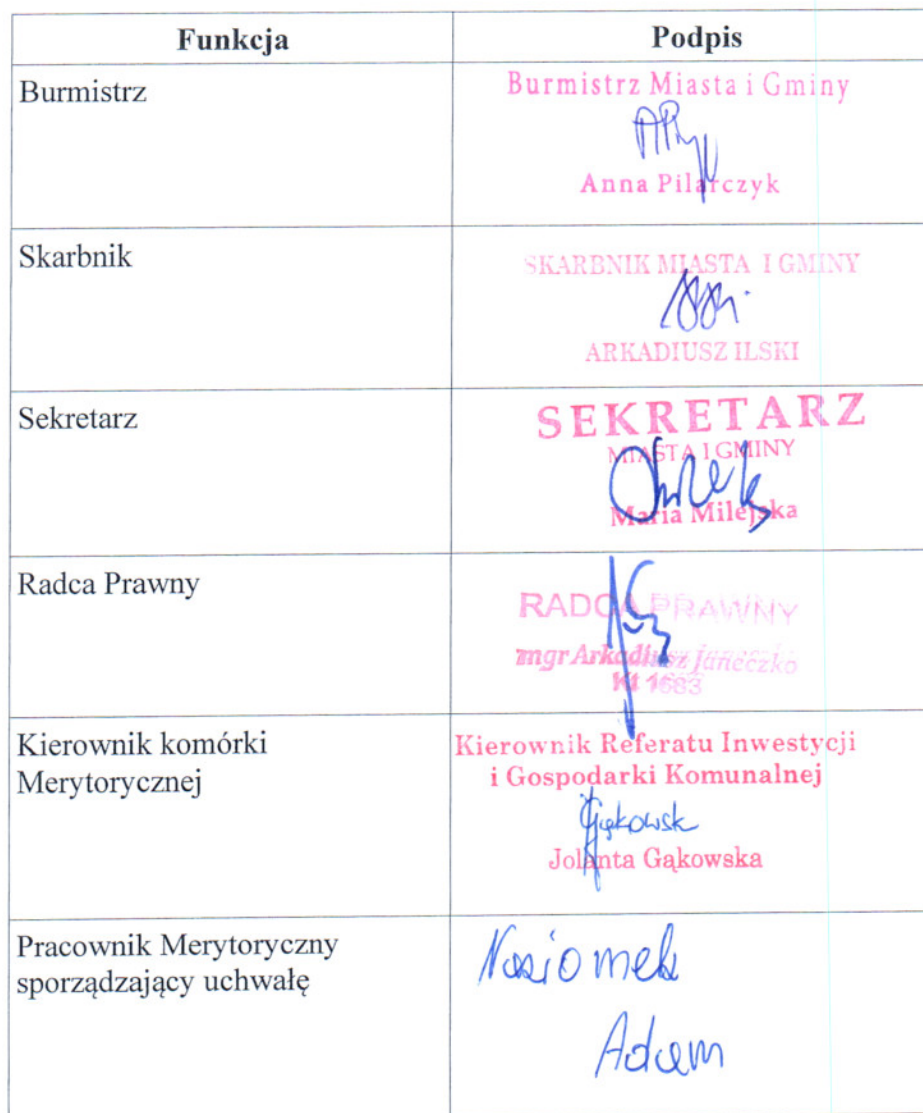 Funkcja
Podpis
Burmistrz
Burmistrz Miasta i Gminy
Anna Pilarczyk
Skarbnik
SKARBNIK MIASTA I GMINY
ARKADIUSZ ILSKI
Sekretarz
SEKRETARZ
MIASTA I GMINY
Maria Milejska
Radca Prawny
RADCA PRAWNY
mgr Arkadiusz Janeczko
Kierownik komórki
Merytorycznej
Kierownik Referatu Inwestycji
i Gospodarki Komunalnej
Jolanta Gąkowska
Pracownik Merytoryczny
sporządzający uchwałę
Adam